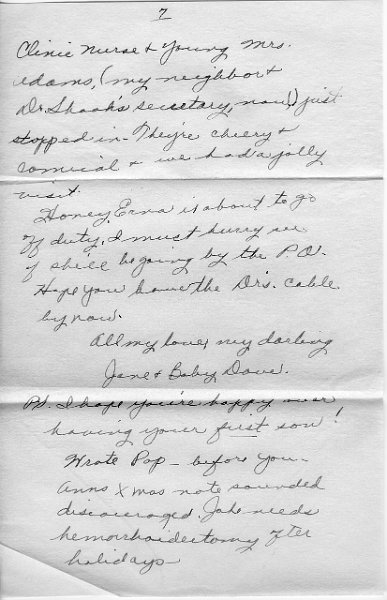 7
Clinic Nurse + Young Mrs.
Adams, (my neighbor +
Dr. Shook's secretary, now!) just
stopped in. They're cheery +
comical + we had a jolly
visit.
Honey, Erna is about to go
off duty. I must hurry see
if she'll be going by the P.O.
Hope you have the Dr's. cable
by now.
All my love, my darling
Jane + Baby Dave.
P.S. I hope you're happy over
having your first son!
Wrote Pop - before you -
Anns Xmas note sounded
discouraged. Jake needs
hemorrhoidectomy after
holidays